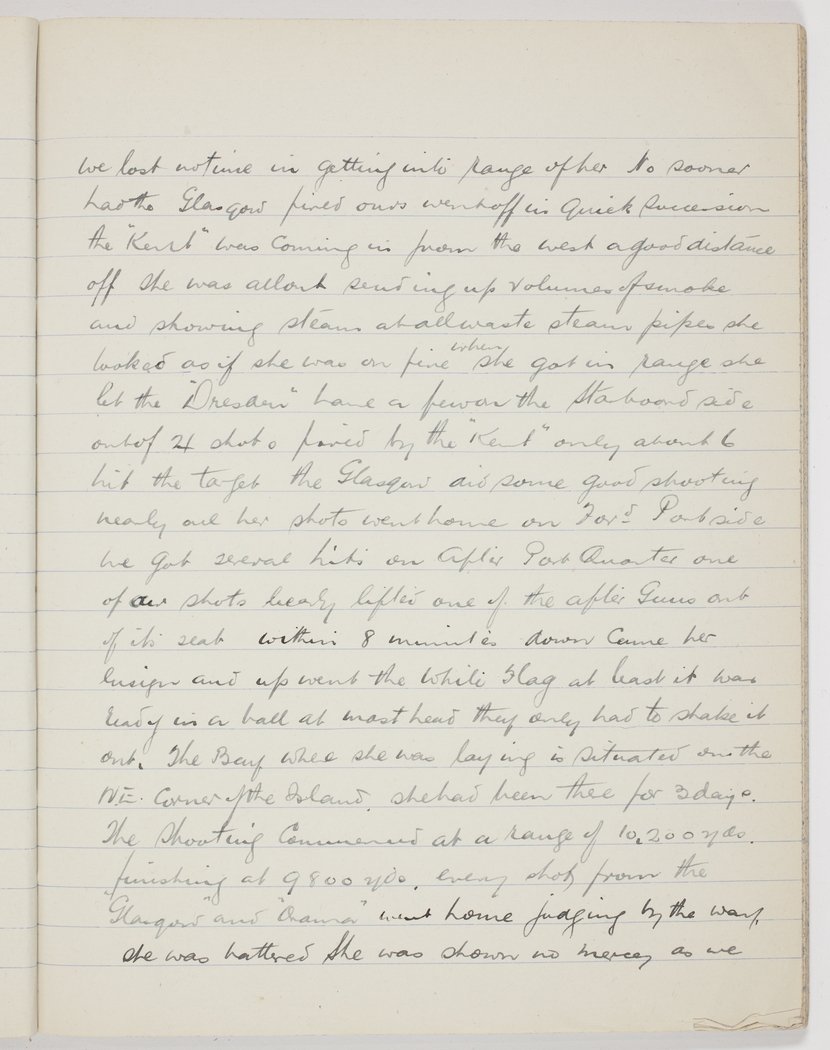 we lost no time in getting into range of her No sooner
had the Glasgow fired ours went off in Quick Succession
the "Kent" was Coming in from the west a good distance
off she was allout sending up volumes of smoke
and showing steam at all waste steam pipes she
looked as if she was on fire when she got in range she
let the "Dresden" have a few on the Starboard side
out of 24 shots fired by the "Kent" only about 6
hit the target the Glasgow did some good shooting
nearly all her shots went home on Ford Port side
we got several hits on After Port Quarter one
of our shots nearly lifted one of the after Guns out
of its seat within 8 minutes down Came her
Ensign and up went the white Flag at least it was
ready in a ball at mast head they only had to shake it
out. The Bay whee she was laying is situated on the
N.E. Corner of the Island. she had been thee for 3 days.
The Shooting Commenced at a range of 10,200 yds.
finishing at 9800 yds. every shot from the
Glasgow" and "Orama" went home judging by the way,
she was battered She was shown no mercy as we